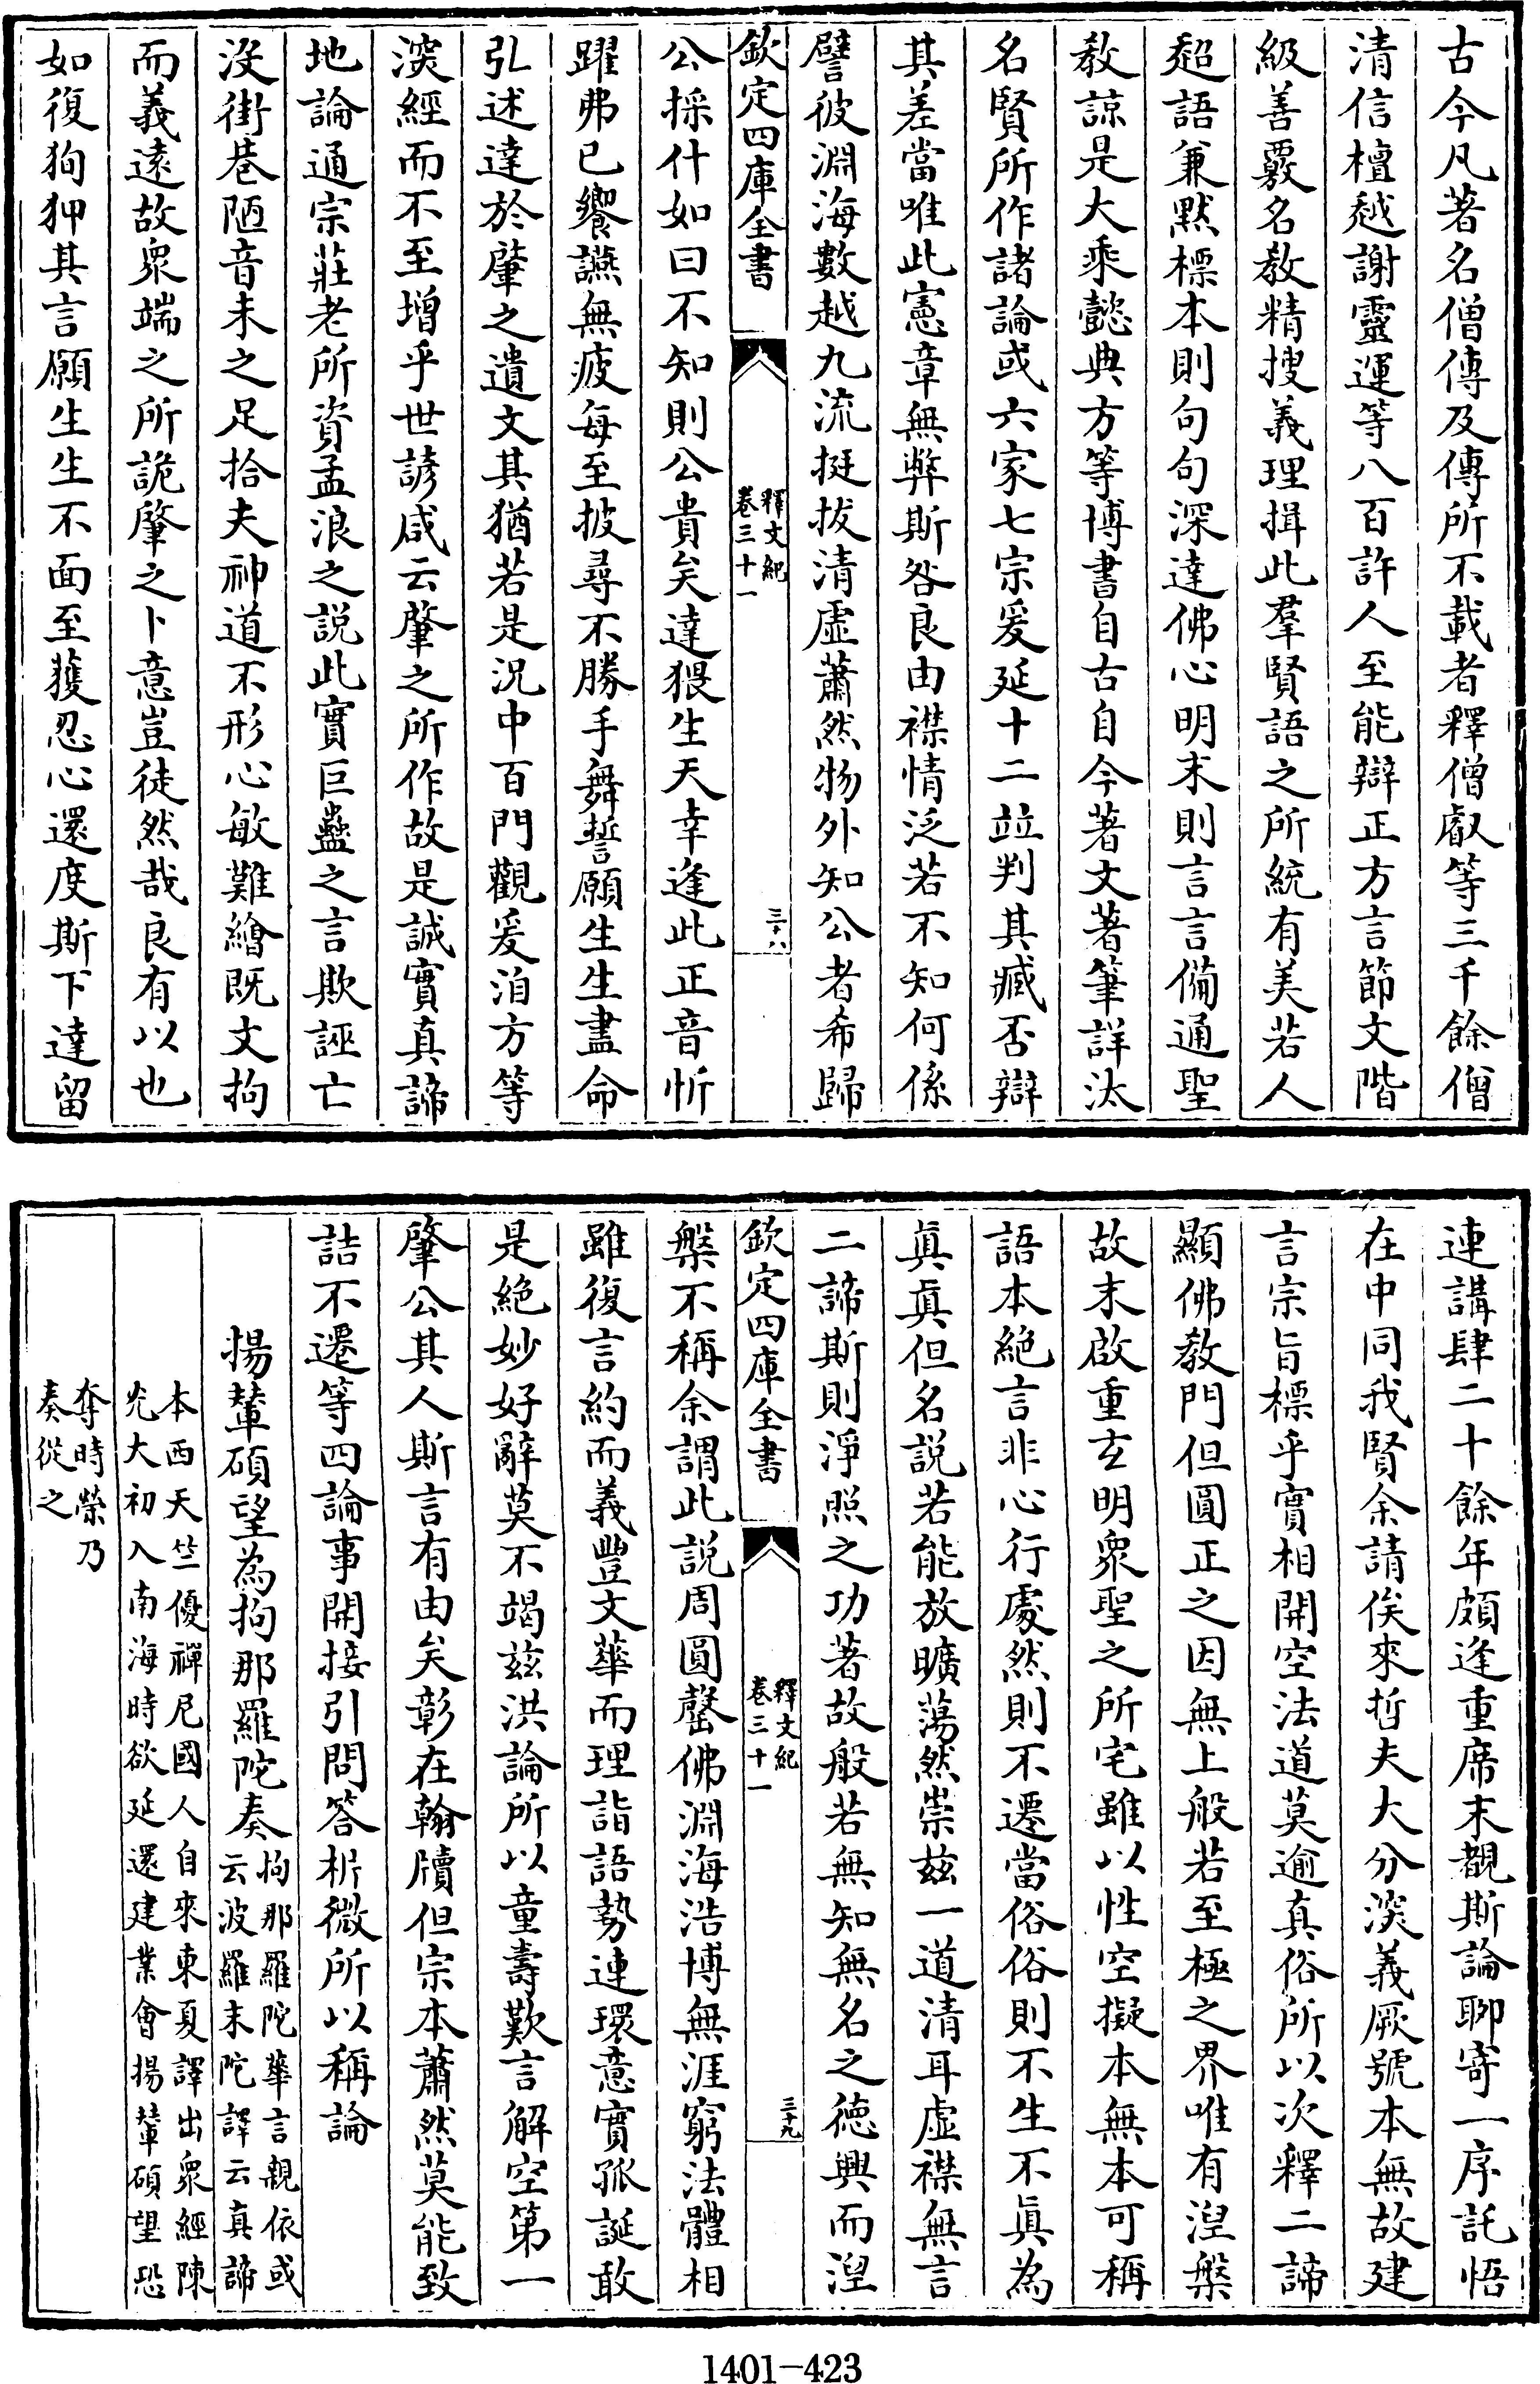 古今凡著名僧傳及傳所不載者釋僧叡等三千餘僧
清信檀越謝靈運等八百許人至能辯正方言節文階
級善覈名教精搜義理揖此羣賢語之所統有美若人
超語兼默標本則句句深達佛心明末則言言備通聖
教諒是大乘懿典方等博書自古自今著文著筆詳汰
名賢所作諸論或六家七宗爰延十二竝判其臧否辯
其差當唯此憲章無弊斯咎良由襟情泛若不知何係
譬彼淵海數越九流挺拔清虛蕭然物外知公者希歸
欽定四庫全書
釋文紀
卷三十一
三十八
公採什如曰不知則公貴矣達猥生天幸逢此正音忻
躍弗已饗讌無疲每至披尋不勝手舞誓願生生盡命
弘述達於肇之遺文其猶若是況中百門觀爰洎方等
深經而不至增乎世諺咸云肇之所作故是誠實真諦
地論通宗莊老所資孟浪之說此實巨蠱之言欺誣亡
沒街巷陋音未之足拾夫神道不形心敏難繪既文拘
而義遠故眾端之所詭肇之卜意豈徒然哉良有以也
如復狥狎其言願生生不面至獲忍心還度斯下達留
連講肆二十餘年頗逢重席末覩斯論聊寄一序託悟
在中同我賢余請俟來哲夫大分深義厥號本無故建
言宗旨標乎實相開空法道莫逾真俗所以次釋二諦
顯佛教門但圓正之因無上般若至極之界唯有湼槃
故末啟重玄明眾聖之所宅雖以性空擬本無本可稱
語本絕言非心行處然則不遷當俗俗則不生不真為
真真但名說若能放曠蕩然崇兹一道清耳虛襟無言
二諦斯則淨照之功著故般若無知無名之德興而湼
欽定四庫全書
釋文紀
卷三十一
三十九
槃不稱余謂此說周圓罄佛淵海浩博無涯窮法體相
雖復言約而義豐文華而理詣語勢連環意實孤誕敢
是絕妙好辭莫不竭兹洪論所以童壽歎言解空第一
肇公其人斯言有由矣彰在翰牘但宗本蕭然莫能致
詰不遷等四論事開接引問答析微所以稱論
揚輦碩望為拘那羅陀奏
拘那羅陀華言親依或
云波羅末陀譯云真諦
本西天竺優禪尼國人自來東夏譯出眾經陳
光大初入南海時欲延還建業會揚輦碩望恐
奪時榮乃
奏從之
1401-423